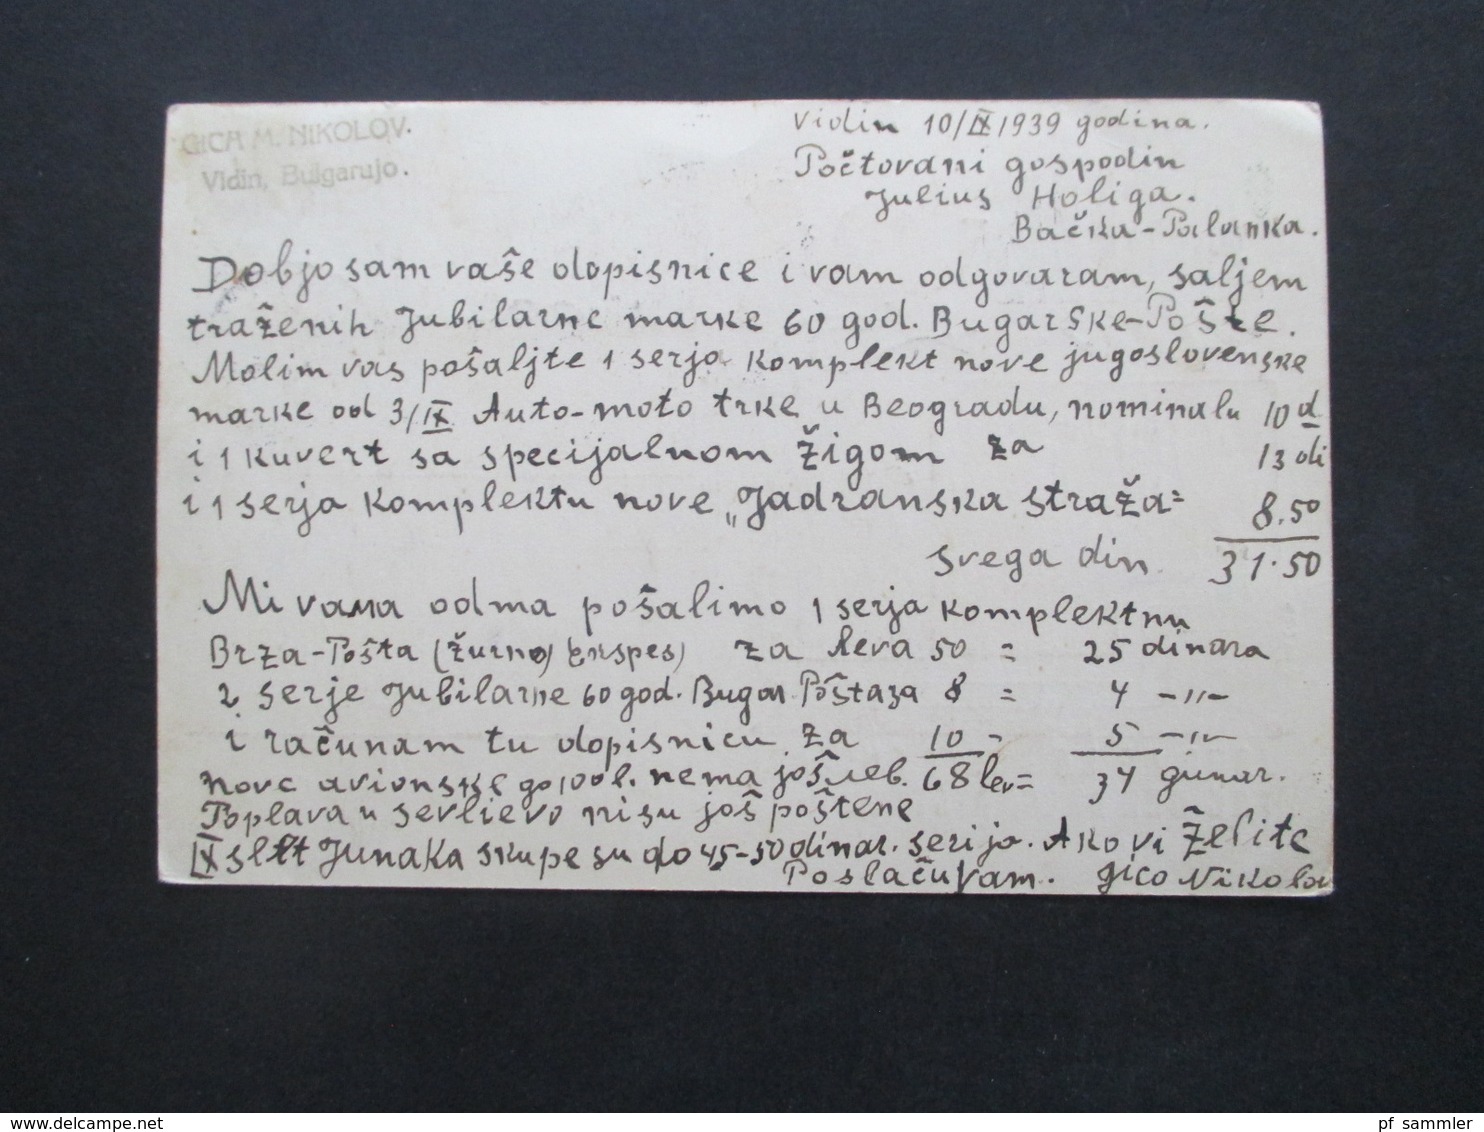 GICA M. NIKOLOV.
Vidin, Bulgarujo.
Vidin 10/IX 1939 godina.
Počtovani gospodin
Julius Holiga.
Bačka-Palanka.
Dobjo sam vaše dopisnice i vam odgovaram, šaljem
traženih Jubilarne marke 60 god. Bugarske-Pošte.
Molim vas pošaljte 1 serja komplekt nove jugoslovenske
marke od 3/IX Auto-moto trke u Beogradu, nominalu 10 d
i 1 kuvert sa specijalnom žigom za 13 di
i 1 serja komplektu nove „Jadranska straža= 8.50
svega din 31.50
Mi vama odma pošalimo 1 serja komplektnu
Brza-Pošta (žurno) Ekspes) za leva 50 = 25 dinara
2 serje Jubilarne 60 god. Bugar Pošta za 8 = 4 -"-
i računam tu dopisnicu za 10 - 5 -"-
nove avionske go 100 l. nema još 68 lev= 34 .
Poplava u sevlievo nisu još poštene
IX slet Junaka skupe su do 45-50 dinar. serijo. Ako vi želite
Poslaču Vam. Gico Nikolov
pf sammler
delcampe.net